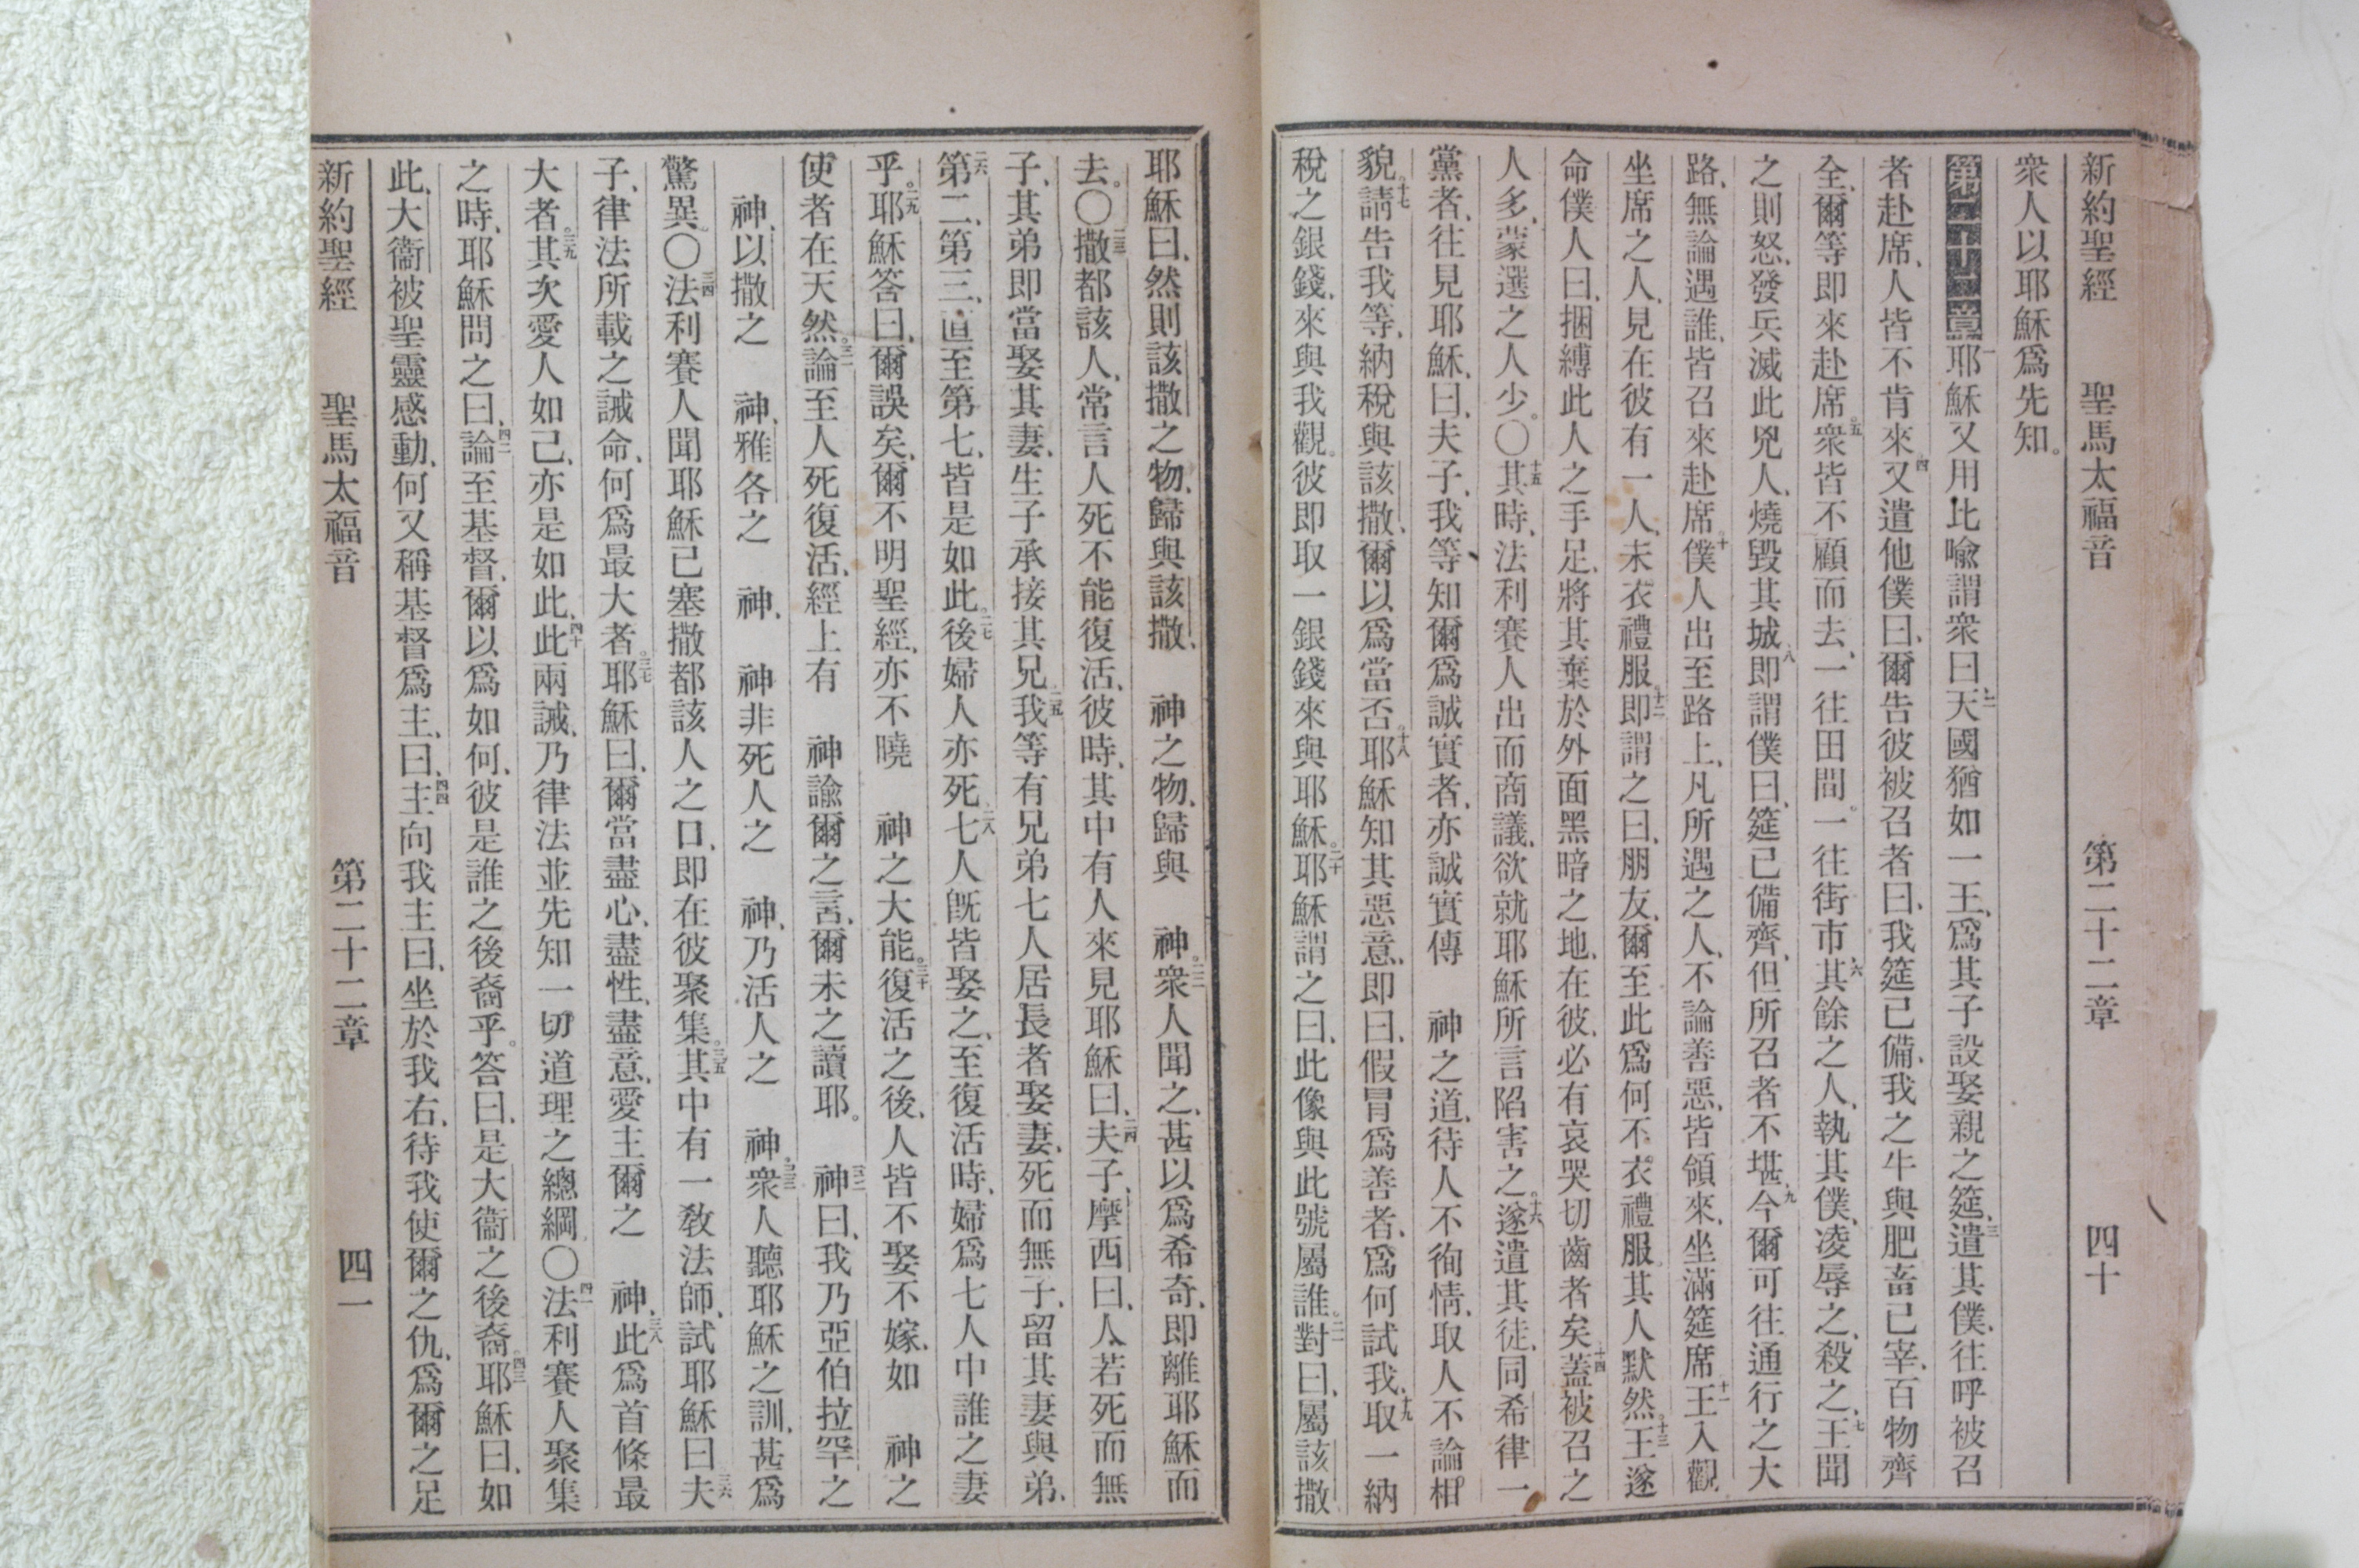 新約聖經 聖馬太福音 第二十二章 四十
衆人以耶穌爲先知。
第二十二章 一耶穌又用此喩謂衆曰、二天國猶如一王、爲其子設娶親之筵、三遣其僕、往呼被召
者赴席、人皆不肯來、四又遣他僕曰、爾告彼被召者曰、我筵已備、我之牛與肥畜已宰、百物齊
全、爾等即來赴席。五衆皆不顧而去、一往田間。一往街市、六其餘之人、執其僕、凌辱之、殺之、七王聞
之則怒、發兵滅此兇人、燒毀其城、八即謂僕曰、筵已備齊、但所召者不堪、九今爾可往通行之大
路、無論遇誰、皆召來赴席。十僕人出至路上、凡所遇之人、不論善惡、皆領來、坐滿筵席、十一王入觀
坐席之人、見在彼有一人、未衣禮服、十二即謂之曰、朋友、爾至此爲何不衣禮服、其人默然。十三王遂
命僕人曰、捆縛此人之手足、將其棄於外面黑暗之地、在彼、必有哀哭切齒者矣、十四蓋被召之
人多、蒙選之人少。〇十五其時、法利賽人出而商議、欲就耶穌所言陷害之。十六遂遣其徒、同希律一
黨者、往見耶穌、曰、夫子、我等知爾爲誠實者、亦誠實傳 神之道、待人不徇情、取人不論相
貌。十七請告我等、納稅與該撒、爾以爲當否。十八耶穌知其惡意、即曰、假冒爲善者、爲何試我、十九取一納
稅之銀錢、來與我觀。彼即取一銀錢來與耶穌。二十耶穌謂之曰、此像與此號屬誰。二一對曰、屬該撒
耶穌曰、然則該撒之物、歸與該撒、 神之物、歸與 神。二二衆人聞之、甚以爲希奇、即離耶穌而
去。〇二三撒都該人、常言人死不能復活、彼時、其中有人來見耶穌曰、二四夫子、摩西曰、人若死而無
子、其弟即當娶其妻、生子承接其兄、二五我等有兄弟七人居長者娶妻、死而無子、留其妻與弟、
二六第二、第三、直至第七、皆是如此。二七後婦人亦死、二八七人旣皆娶之、至復活時、婦爲七人中誰之妻
乎。二九耶穌答曰、爾誤矣、爾不明聖經、亦不曉 神之大能。三十復活之後、人皆不娶不嫁、如 神之
使者在天然。三一論至人死復活、經上有 神諭爾之言、爾未之讀耶。 三二神曰、我乃亞伯拉罕之
神、以撒之 神、雅各之 神、 神非死人之 神、乃活人之 神。三三衆人聽耶穌之訓、甚爲
驚異〇三四法利賽人聞耶穌已塞撒都該人之口、即在彼聚集。三五其中有一敎法師、試耶穌曰三六夫
子、律法所載之誡命、何爲最大者。三七耶穌曰、爾當盡心、盡性、盡意、愛主爾之 神、三八此爲首條最
大者。三九其次愛人如己、亦是如此、四十此兩誡、乃律法並先知一切道理之總綱〇四一法利賽人聚集
之時、耶穌問之曰、四二論至基督、爾以爲如何、彼是誰之後裔乎。答曰、是大衞之後裔。四三耶穌曰、如
此、大衞被聖靈感動、何又稱基督爲主、曰、四四主向我主曰、坐於我右、待我使爾之仇、爲爾之足
新約聖經 聖馬太福音 第二十二章 四一